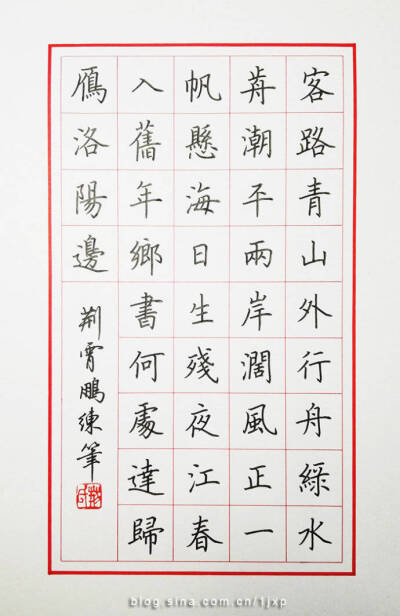 客路青山外行舟綠水
歬潮平兩岸濶風正一
帆懸海日生殘夜江春
入舊年鄉書何處達歸
鴈洛陽邊
荆霄鵬練筆
blog.sina.com.cn/1jxp